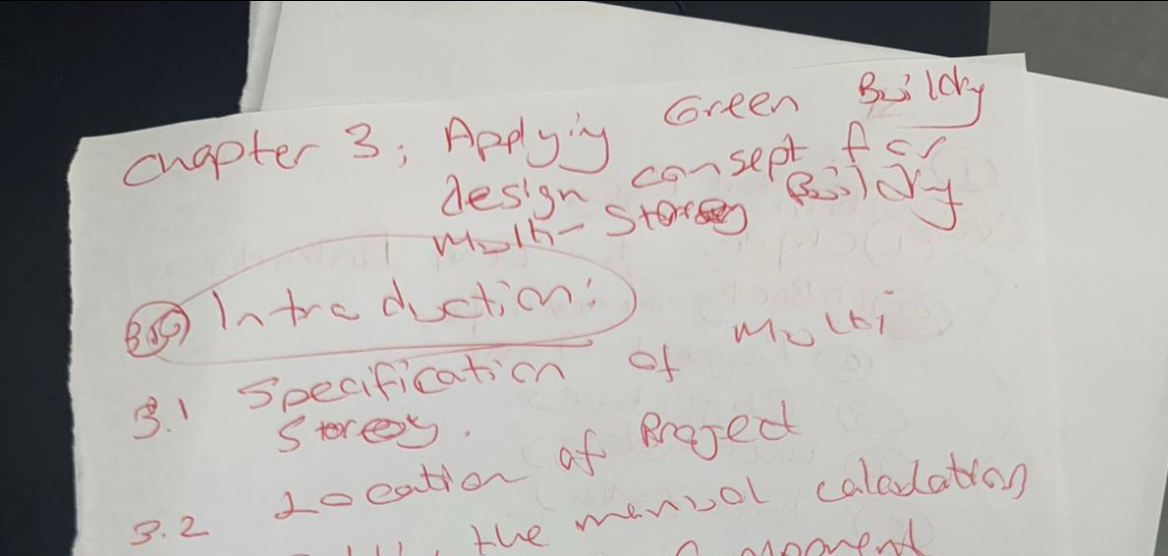 Chapter 3; Applying Green Building
design consept for
Multi-Storey Building
Introduction:
3.1 Specification of Multi
Storey.
3.2 Location of Project
the manual calculation
moment